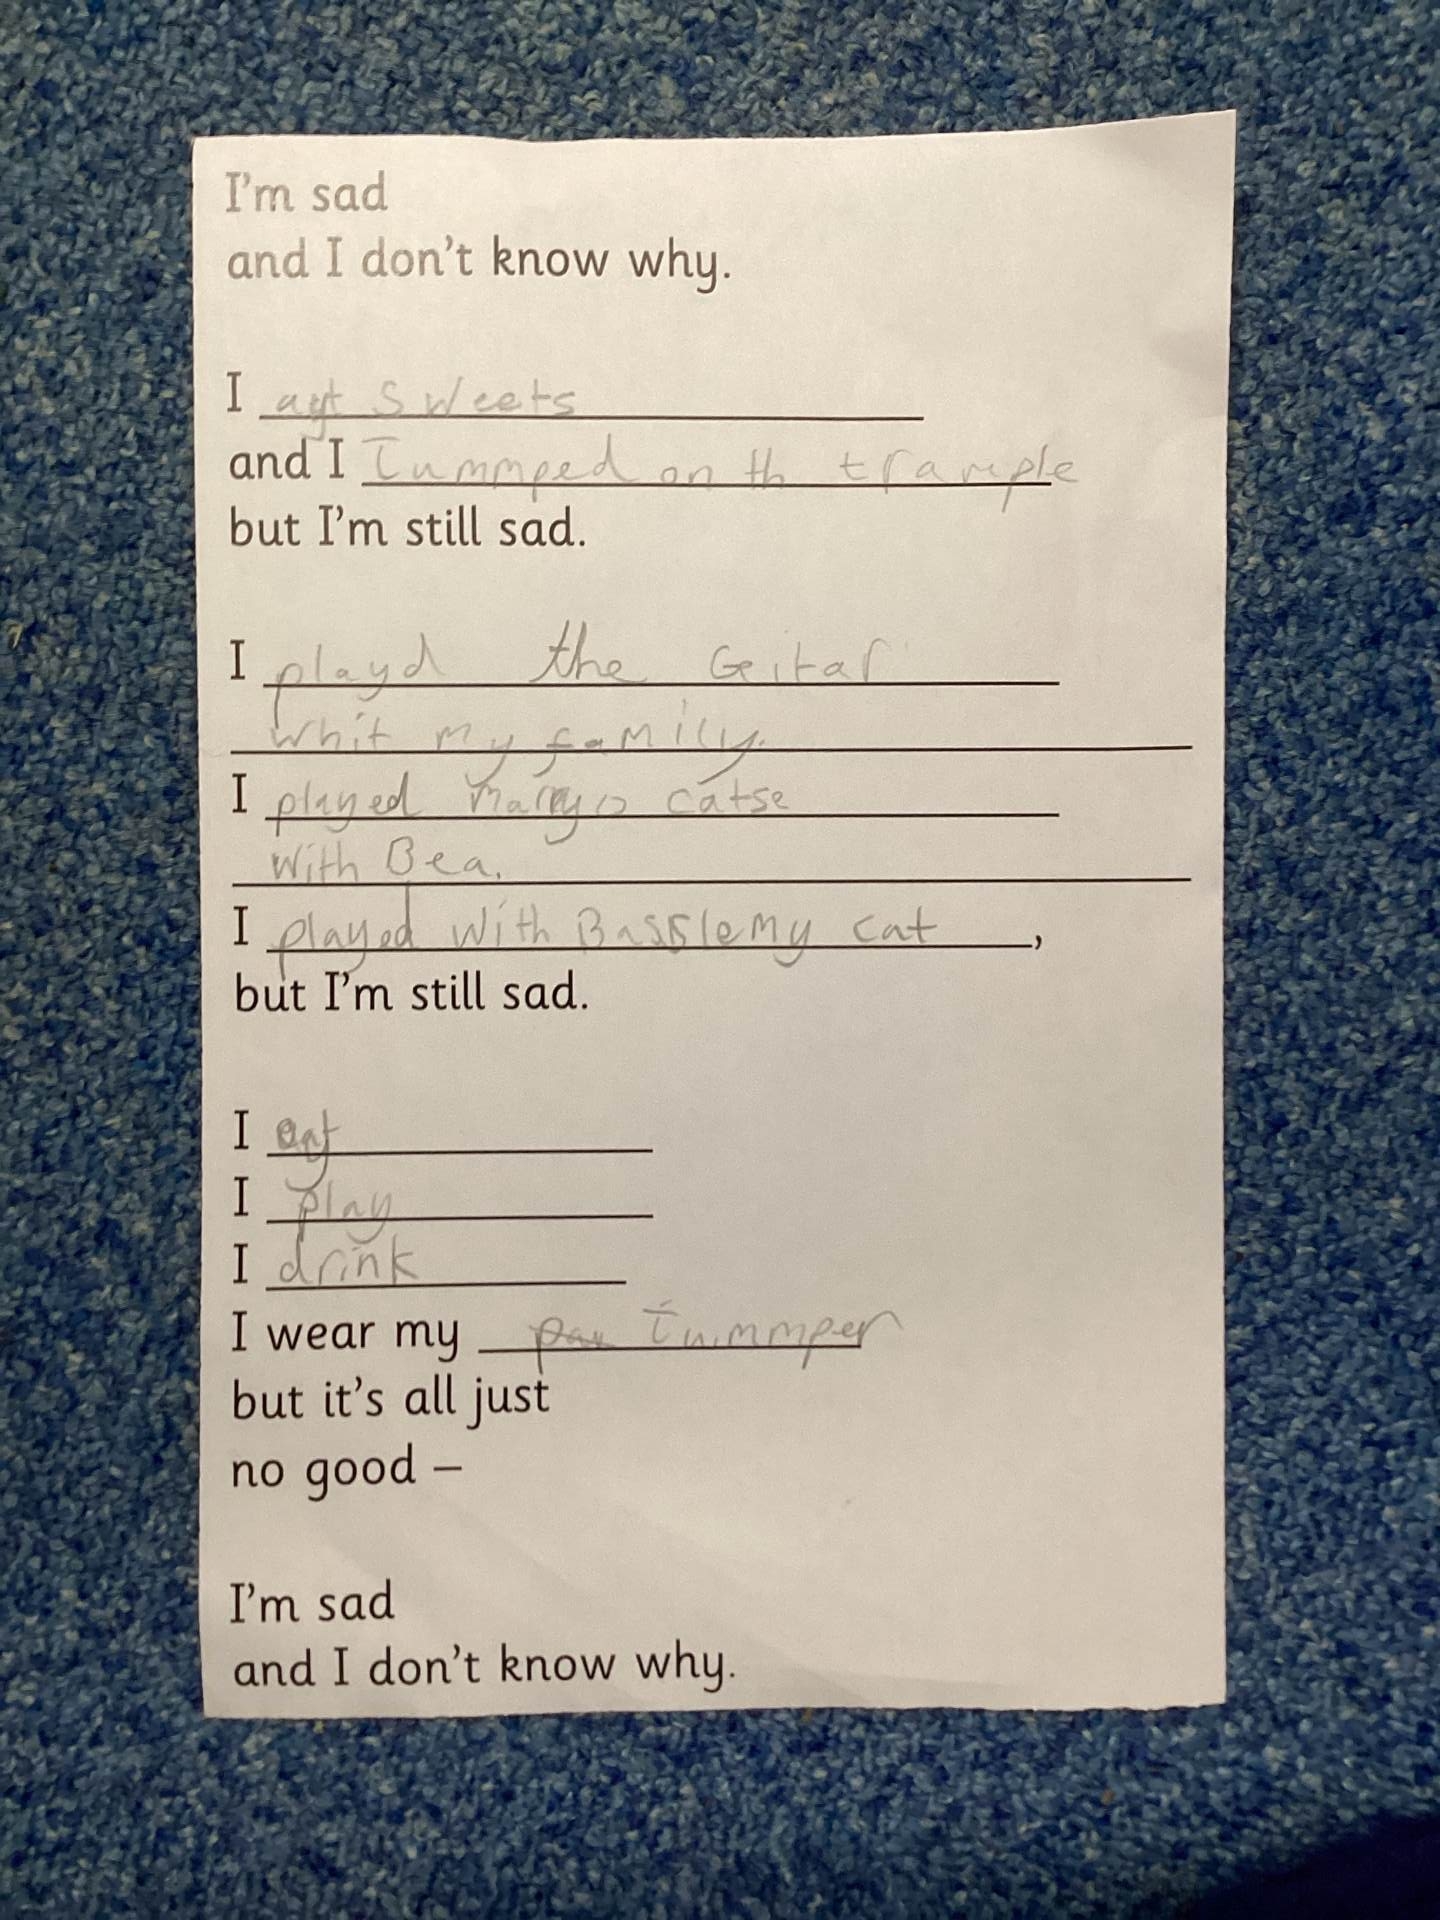 I'm sad
and I don't know why.
I ayt sweets
and I Jummped on th trample
but I'm still sad.
I playd the Geitar
whit my family.
I played catse
with Bea.
I played with my cat,
but I'm still sad.
I
I play
I drink
I wear my Jummper
but it's all just
no good –
I'm sad
and I don't know why.